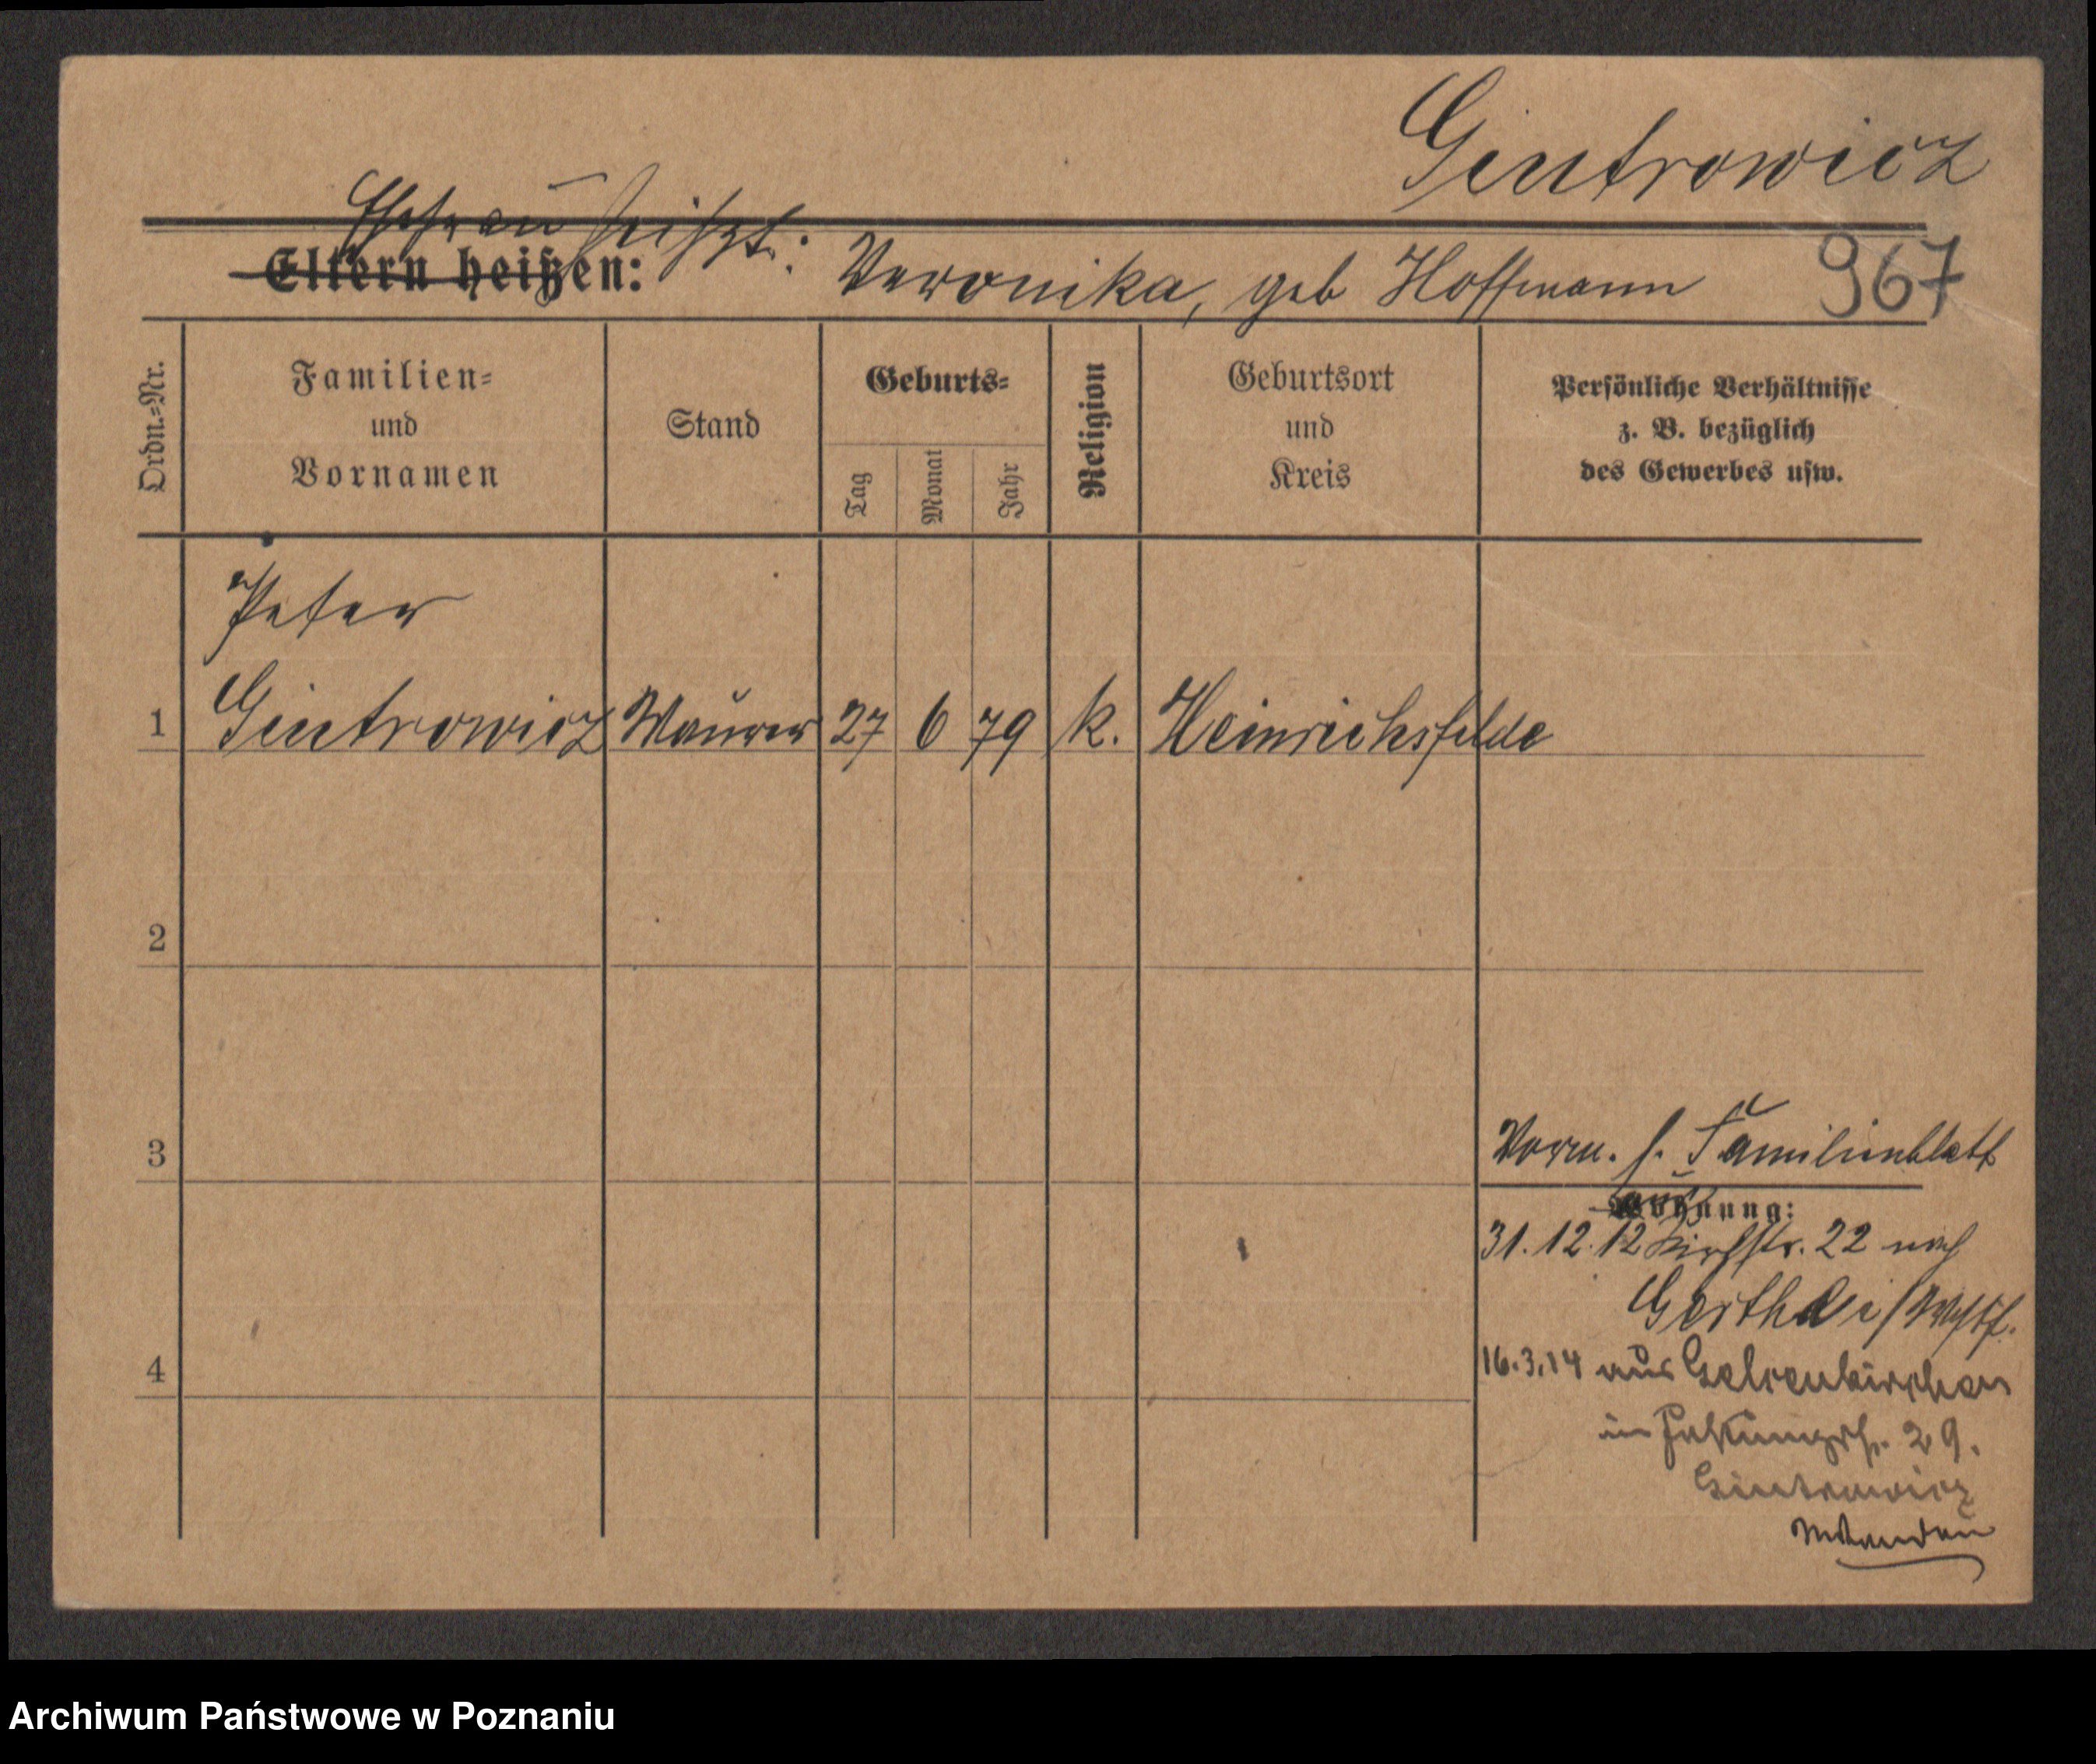 Gintrowicz
Ehefrau heißt:
Eltern heißen: Veronika, geb Hoffmann 967
Ordn.=Nr.
Familien=
und
Vornamen
Stand
Geburts=
Tag
Monat
Jahr
Religion
Geburtsort
und
Kreis
Persönliche Verhältnisse
z. B. bezüglich
des Gewerbes usw.
Peter
1 Gintrowicz Maurer 27 6 79 k. Heinrichsfelde
2
3
Vorm. s. Familienblatt
Wohnung:
31.12.12 Kirchstr. 22 nach
Gerthe i/Westf.
4
16.3.14 aus Gelsenkirchen
in 29.
Gintrowicz